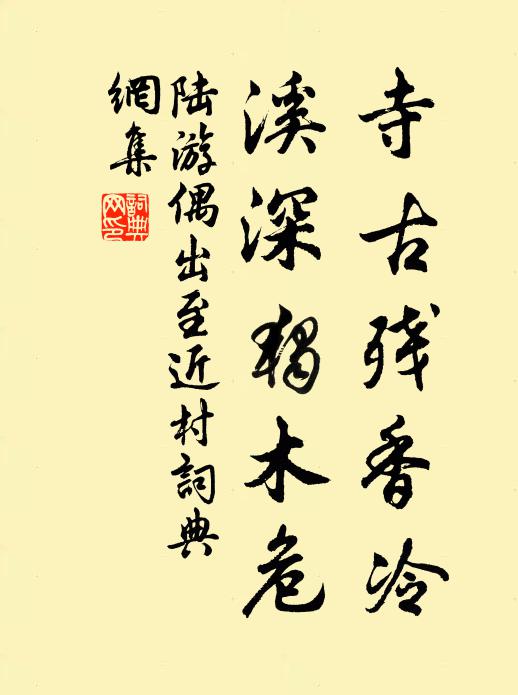 寺古残香冷
溪深獨木危
陆游偶出至近村詞典
網集
詞典
网印